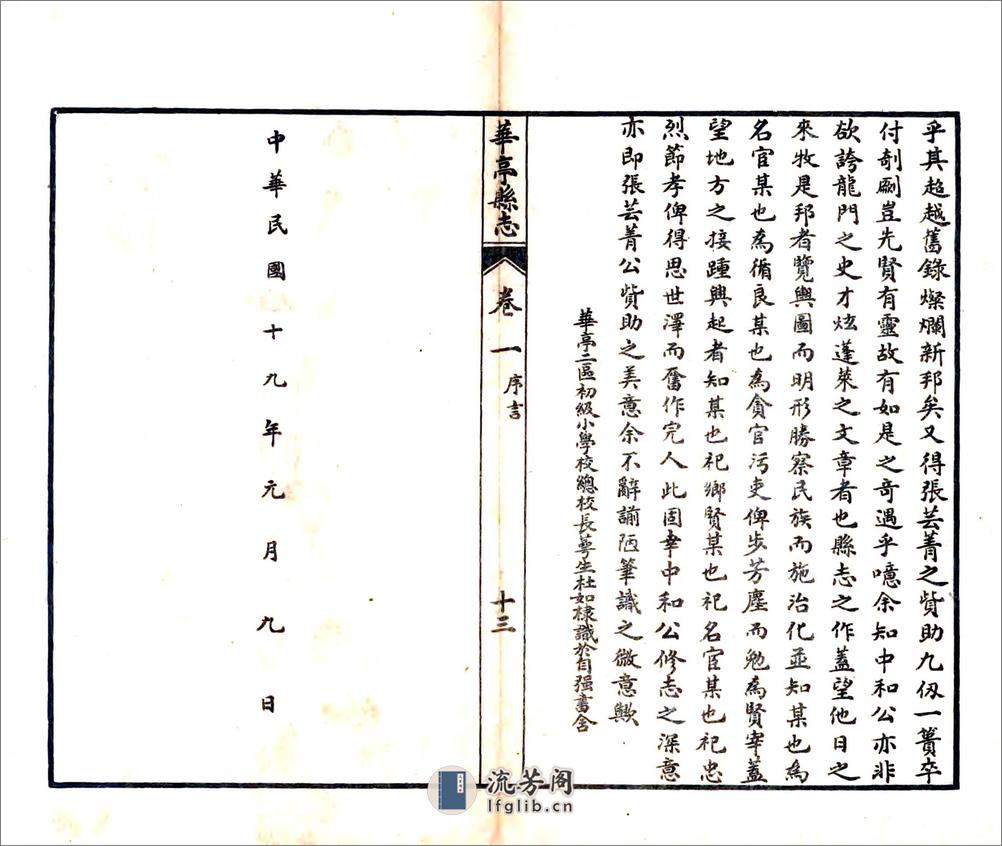 乎其超越舊錄燦爛新邦矣又得張芸菁之貲助九仭一簣卒
付剞劂豈先賢有靈故有如是之奇遇乎噫余知中和公亦非
欲誇龍門之史才炫蓬萊之文章者也縣志之作蓋望他日之
來牧是邦者覽輿圖而明形勝察民族而施治化並知某也為
名宦某也為循良某也為貪官污吏俾步芳塵而勉為賢宰蓋
望地方之接踵興起者知某也祀鄉賢某也祀名宦某也祀忠
烈節孝俾得思世澤而奮作完人此固幸中和公修志之深意
亦即張芸菁公貲助之美意余不辭謭陋筆識之微意歟
華亭二區初級小學校總校長萼生杜如棣識於自强書舍
華亭縣志
卷一
序言
十三
中華民國十九年元月九日
流芳阁
lfglib.cn